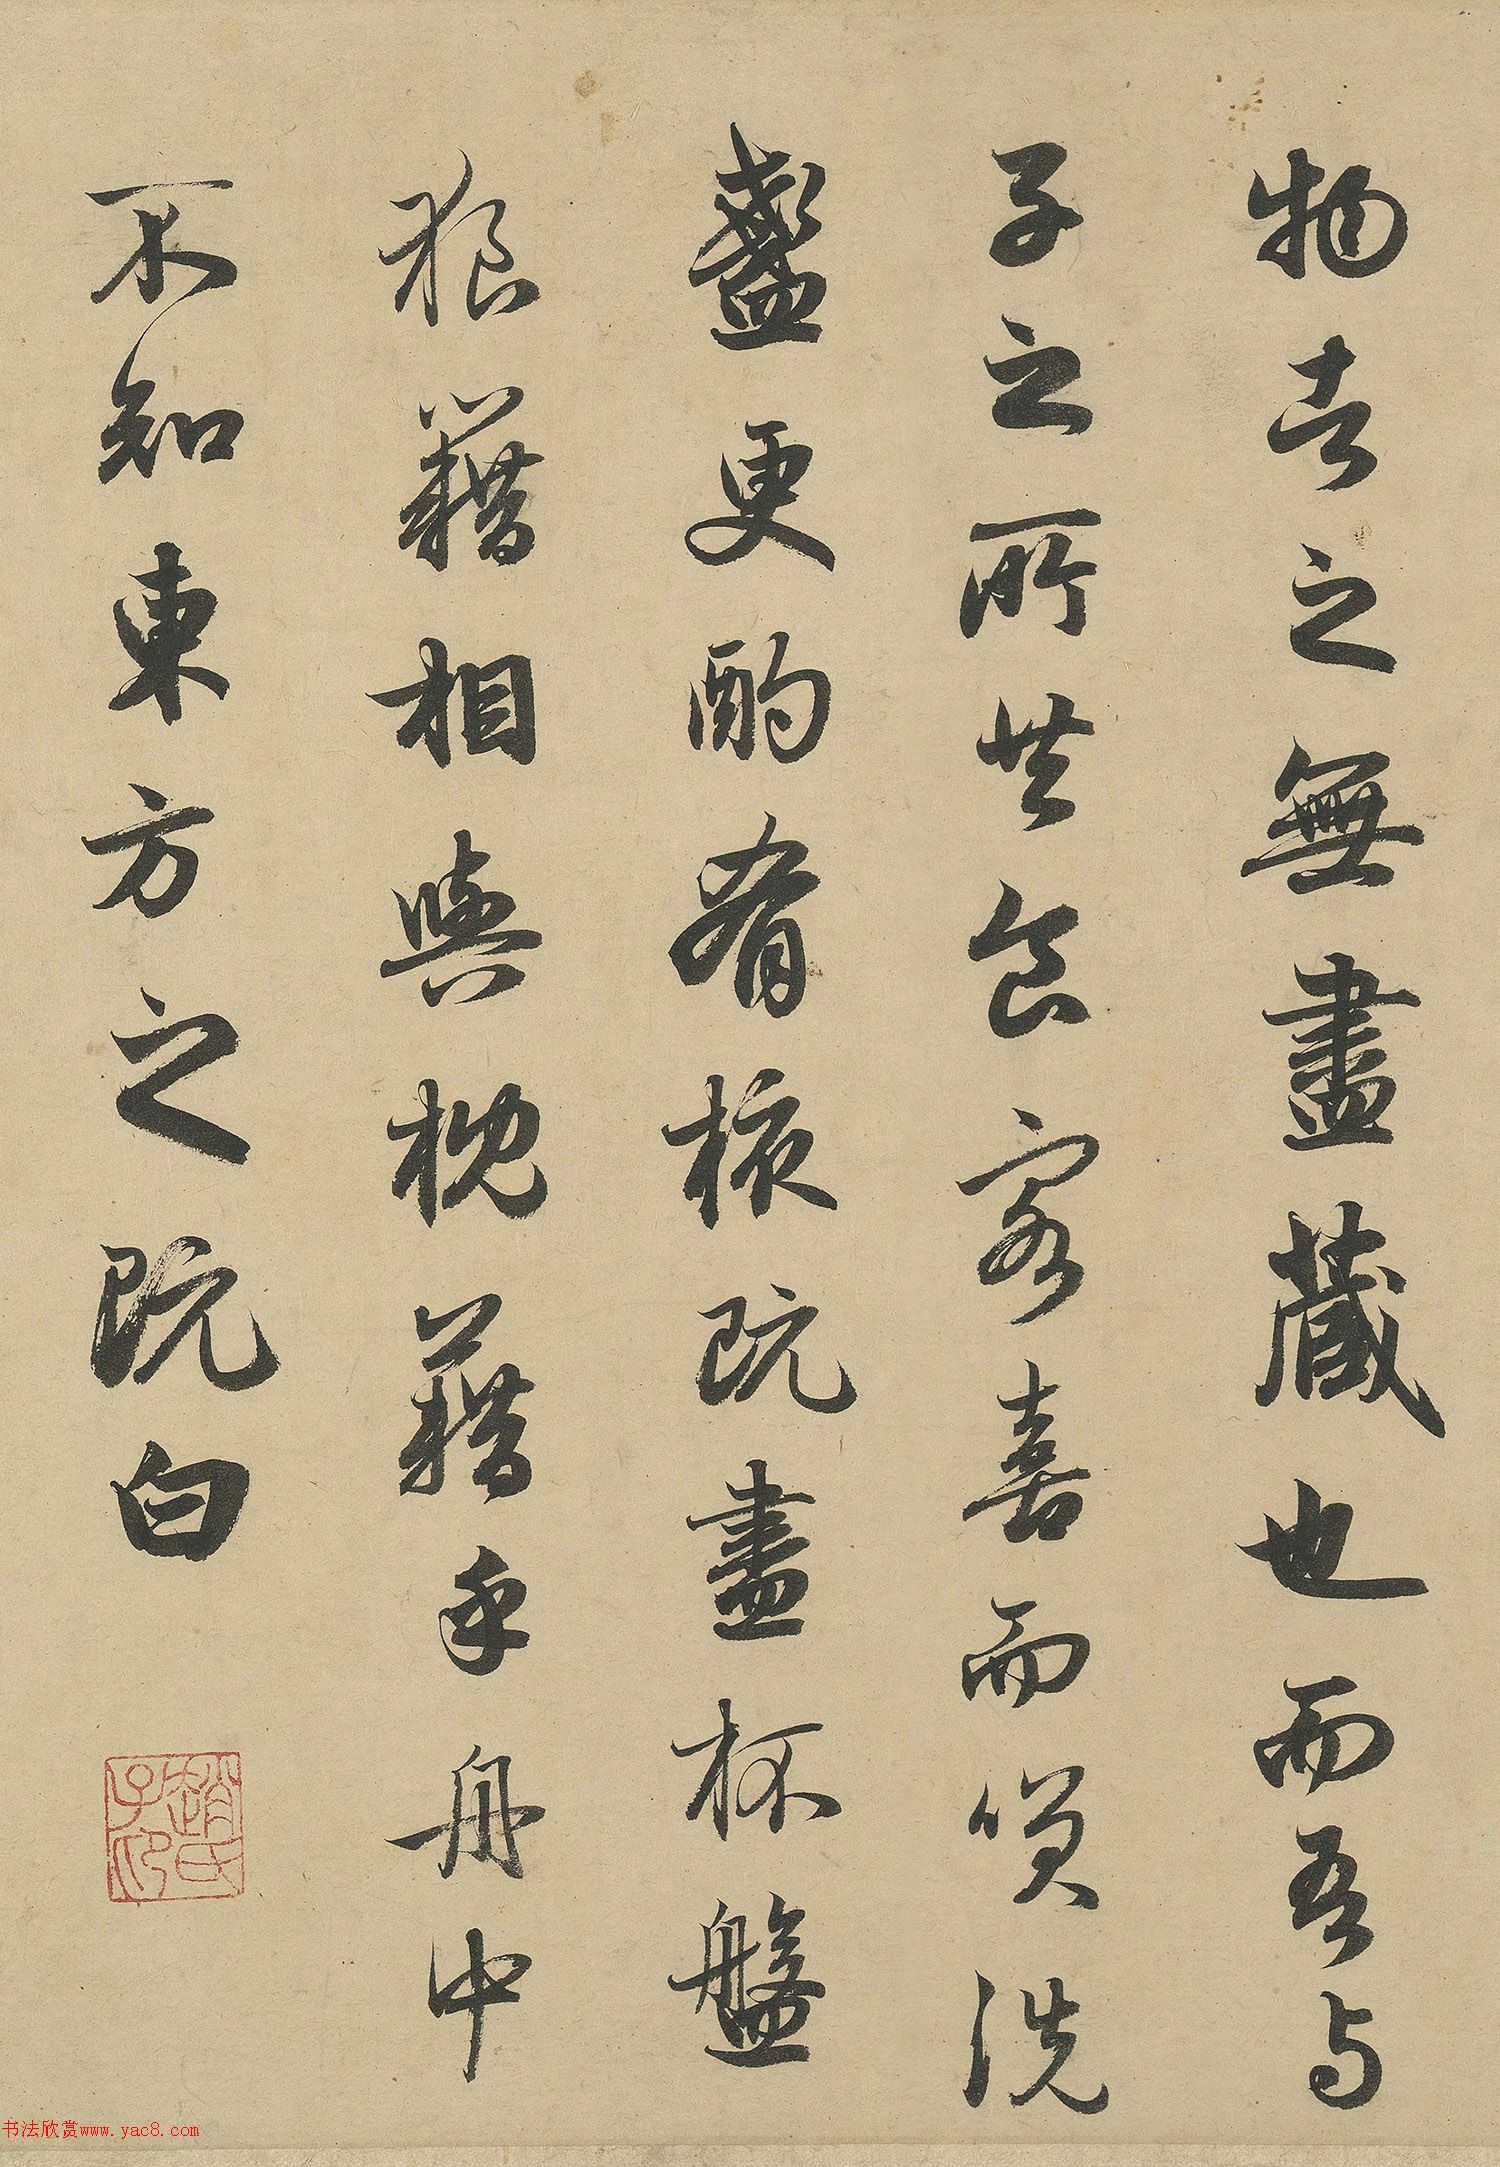 物者之無盡藏也而吾与
子之所共食客喜而笑洗
盞更酌肴核既盡杯盤
狼籍相與枕藉乎舟中
不知東方之既白
趙氏子印
书法欣赏www.yac8.com